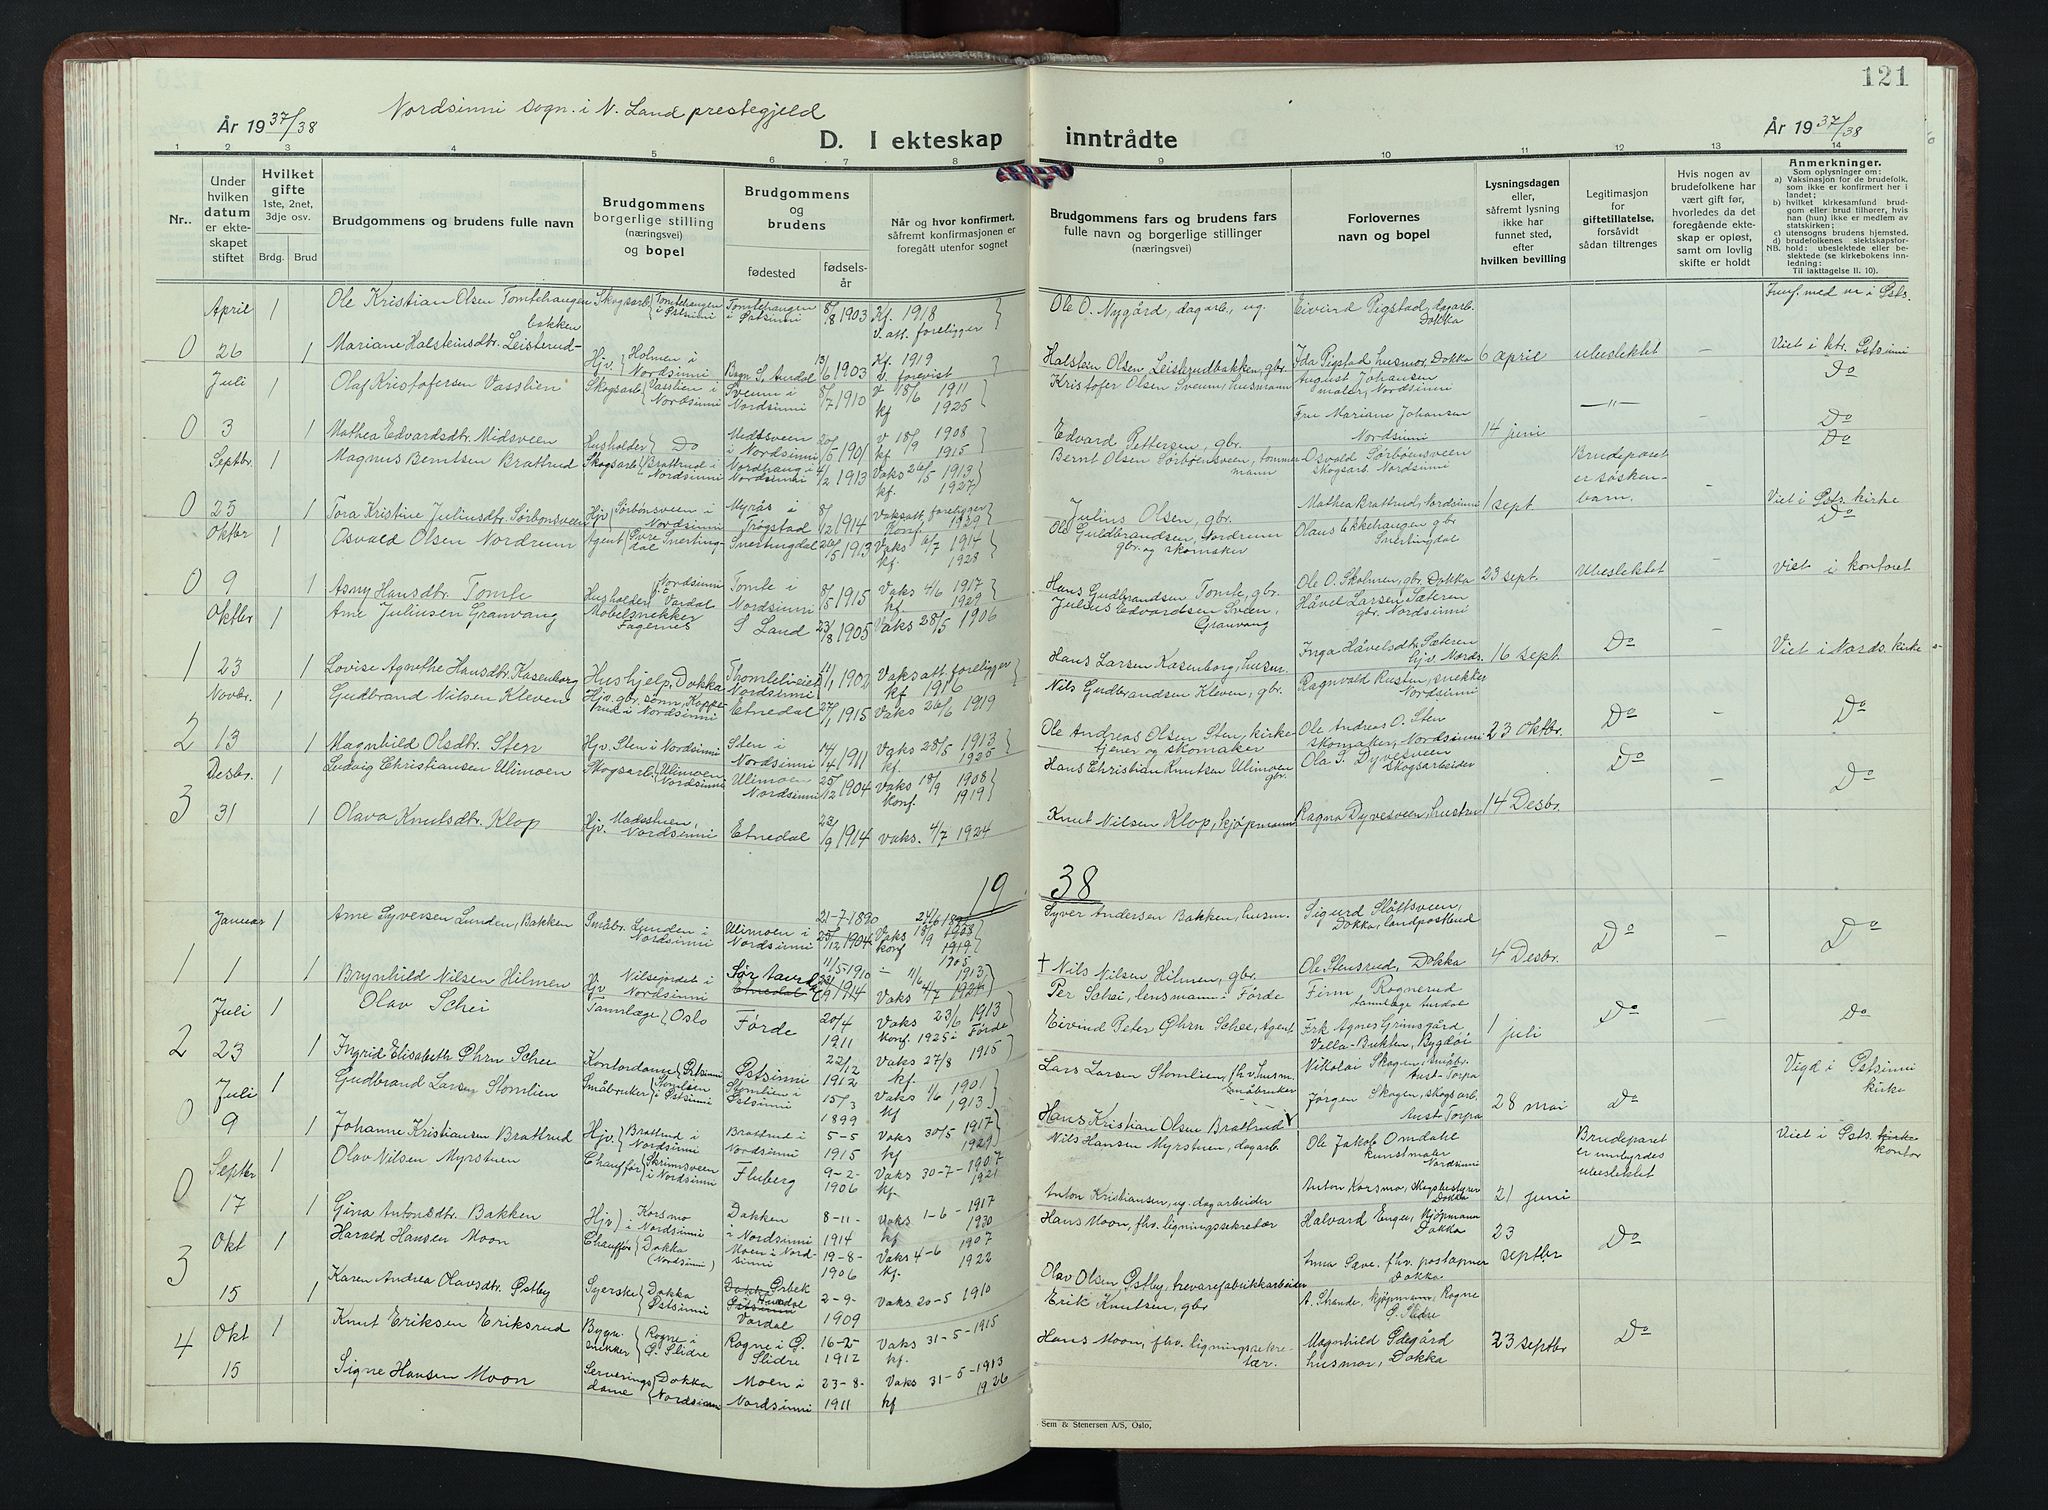 121
Nordsinni sogn i N. Land prestegjeld
År 1937/38
D. I ekteskap inntrådte
År 1937/38
1 2 3 4 5 6 7 8 9 10 11 12 13 14
Nr.
Under hvilken datum er ekteskapet stiftet
Hvilket gifte 1ste, 2net, 3dje osv.
Brdg. Brud
Brudgommens og brudens fulle navn
Brudgommens borgerlige stilling (næringsvei) og bopel
Brudgommens og brudens
fødested
fødselsår
Når og hvor konfirmert, såfremt konfirmasjonen er foregått utenfor sognet
Brudgommens fars og brudens fars fulle navn og borgerlige stillinger (næringsvei)
Forlovernes navn og bopel
Lysningsdagen eller, såfremt lysning ikke har funnet sted, efter hvilken bevilling
Legitimasjon for giftetillatelse, forsåvidt sådan tiltrenges
Hvis nogen av brudefolkene har vært gift før, hvorledes da det foregående ekteskap er opløst, samt om lovlig skifte er holdt
Anmerkninger.
Som oplysninger om:
a) Vaksinasjon for de brudefolk, som ikke er konfirmert her i landet;
b) hvilket kirkesamfund brudgom eller brud tilhører, hvis han (hun) ikke er medlem av statskirken;
c) utensogns brudens hjemsted.
d) brudefolkenes slektskapsforhold: ubeslektede eller beslektede (se kirkebokens innledning:
Til iakttagelse II. 10).
April 1 Ole Kristian Olsen Tomtehaugen Skogsarb. Tomtehaugen i Østsinni Tomtehaugen i Østsinni 8/8 1903 Kf. 1918 Ole O. Nygård, dagarb. Eivind Pigstad, dagarb. Dokka
0 26 1 Mariane Halsteinsdtr. Leisterudbakken Hjv. Holmen i Nordsinni Bagn S. Aurdal 13/6 1903 Kf. 1919 Halstein Olsen Leisterudbakken, gbr. Ida Pigstad husmor, Dokka 6 april ubeslektet Viet i ktr. Østsinni
Juli 1 Olaf Kristofersen Vasslien Skogsarb. Vasslien i Nordsinni Sveum i Nordsinni 8/7 1910 V 18/6 1911 kf 1925 Kristofer Olsen Sveum, husmann August Johansen maler, Nordsinni -"- Do
0 3 1 Mathea Edvardsdtr. Midsveen Husholder Do Midtsveen i Nordsinni 20/5 1901 V 18/9 1908 kf 1915 Edvard Pettersen, gbr. Fru Mariane Johansen Nordsinni 14 juni Do
Septbr. 1 Magnus Berntsen Brattrud Skogsarb. Brattrud i Nordsinni Nordhaug i Nordsinni 4/2 1913 Vaks 26/5 1913 kf. 1927 Bernt Olsen Sørbønsveen, tømmermann Osvald Sørbøensveen skogsarb. Nordsinni Brudeparet er søskenbarn. Do
0 25 1 Tora Kristine Juliusdtr. Sørbønsveen Hjv. Sørbønsveen i Nordsinni Myrås i Trøgstad 8/12 1914 Vaksatt. foreligger Konf. 1929 Julius Olsen, gbr. Mathea Brattrud, Nordsinni 1 sept. Viet i Østs. kirke
Oktbr 1 Osvald Olsen Nordrum Agent Øvre Snertingdal Snertingdal 26/5 1913 Vaks 6/7 1914 kf. 1928 Ole Guldbrandsen, Nordrum gbr. og skomaker Olaus Ekkehaugen gbr Snertingdal Do
0 9 1 Asny Hansdtr. Tomle Husholder Nordsinni Vardal Tomle i Nordsinni 8/5 1915 Vaks 4/6 1917 kf. 1929 Hans Gudbrandsen Tomle, gbr. Ole O. Skolmen, gbr. Dokka 23 sept. Ubeslektet Viet i kontoret
Oktbr 1 Arne Juliussen Granvang Møbelsnekker Fagernes S Land 23/8 1905 Vaks 28/5 1906 Julius Edvardsen Sveen, Granvang Håvel Larsen Sæteren gbr. Nordsinni
1 23 1 Lovise Agnethe Hansdtr. Kasenborg Hushjelp, Dokka Thomleiveiet Nordsinni 11/1 1902 Vaksatt. foreligger kf 1916 Hans Larsen Kasenborg, husm. Inga Håvelsdtr. Sæteren hjv. Nords. 16 sept. Do Viet i Nords. kirke
Novbr. 1 Gudbrand Nilsen Kleven Hjv. gbr. sønn, Kopperud i Nordsinni Etnedal 27/1 1915 Vaks 26/6 1919 Nils Gudbrandsen Kleven, gbr. Ragnvald Rusten, snekker Nordsinni
2 13 1 Magnhild Olsdtr. Sten Hjv. Sten i Nordsinni Sten i Nordsinni 14/4 1911 Vaks 28/5 1913 kf. 1925 Ole Andreas Olsen Sten, kirketjener og skomaker Ole Andreas O. Sten skomaker, Nordsinni 23 Oktbr. Do - Do
Desbr. 1 Ludvig Christiansen Ulimoen Skogsarb. Ulimoen Nordsinni Ulimoen Nordsinni 25/12 1904 Vaks 18/9 1908 Konf. 1919 Hans Christian Knutsen Ulimoen gbr. Ola S. Dyvesveen skogsarbeider Do
3 31 1 Olava Knutsdtr. Klop Hjv. Madsstuen, Nordsinni Etnedal 22/9 1914 Vaks. 4/7 1924 Knut Nilsen Klop, kjøpmann Ragna Dyvesveen, hustru 14 Desbr. - Do
1938
Januar 1 Arne Syversen Lunden, Bakken Småbr. Lunden i Nordsinni Ulimoen i Nordsinni 21-7-1890 25/12 1904 Vaks 18/9 1908 konf 1919 Syver Andersen Bakken, husm. Sigurd Slåttsveen, Dokka, landpostbud
1 1 1 Brynhild Nilsen Hilmen Hjv Nilsejordet i Nordsinni Sør Aurdal Etnedal 11/5 1910 22/9 1914 Vaks 4/7 1924 † Nils Nilsen Hilmen, gbr. Ole Stensrud, Dokka 4 Desbr. Do - Do
Juli 1 Olav Schei Tannlæge Oslo Førde 20/4 1911 Vaks 23/6 1913 Konf. 1925 i Førde Per Schei, lensmann i Førde Finn Rognerud tannlæge Aurdal
2 23 1 Ingrid Elisabeth Øhrn Schee Kontordame Østsinni Østsinni 22/12 1912 Vaks 27/8 1915 kf. Eivind Peter Øhrn Schee, Agent Frk Agnes Grimsgård, Villa-Bukten, Bygdøi 1 juli Do - Do
Juli 1 Gudbrand Larsen Stomlien Småbruker Stomlien i Østsinni Stomlien i Østsinni 15/3 1899 Vaks 1/6 1901 kf 1913 Lars Larsen Stomlien, fhv. husm. Småbruker Nikolai Skogen, småbr. Aust-Torpa Vigd i Østsinni kirke
0 9 1 Johanne Kristiansen Brattrud Hjv. Brattrud i Nordsinni Brattrud i Nordsinni 5-5 1915 Vaks 30/5 1917 kf 1929 Hans Kristian Olsen Brattrud Jørgen Skogen, skogsarb. Aust Torpa 28 mai Do
Septbr 1 Olav Nilsen Myrstuen Chauffør Skrimsveen i Nordsinni Fluberg 9-2-1906 Vaks 30-7-1907 kf. 1921 Nils Hansen Myrstuen, dagarb. Ole Jakob Omdahl kunstmaler Nordsinni Brudeparet er innbyrdes ubeslektet Viet i Østs. kirke kontor
0 17 1 Gina Antonsdtr. Bakken Hjv Korsmo i Nordsinni Dokken i Nordsinni 8-11-1914 Vaks 1-6-1917 kf 1930 Anton Kristiansen, dagarbeider Anton Korsmo, Skogbestyrer Dokka 21 juni
Okt 1 Harald Hansen Moon Chauffør Dokka (Nordsinni) Moen i Nordsinni 19-8-1906 Vaks 4-6 1907 kf. 1922 Hans Moon, fhv. ligningssekretær Halvard Enger, kjøpmann Dokka 23 septbr Do
3 15 1 Karen Andrea Olavsdtr. Østby Syerske Dokka Østsinni Vardal 2-9-1909 Vaks 20-5 1910 Olav Olsen Østby, trevarefabrikkarbeider Anna Save, fhv. postapner Dokka
4 Okt 1 Knut Eriksen Eriksrud Bygn. snikker Rogne i Ø. Slidre Rogne i Ø. Slidre 16-2-1912 Vaks 31-5-1915 kf. Erik Knutsen, gbr A. Strande, kjøpmann, Rogne Ø. Slidre
15 Signe Hansen Moon Serveringsdame Dokka Nordsinni Moen i Nordsinni 23-8-1911 Vaks 31-5-1913 kf 1926 Hans Moon, fhv. ligningssekretær. Magnhild Ødegård husmor, Dokka 23 septbr Do
Sem & Stenersen A/S, Oslo.